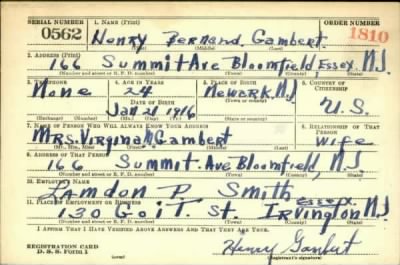 SERIAL NUMBER 1. NAME (Print) ORDER NUMBER
0562 Henry Bernard Gambert 1810
(First) (Middle) (Last)
2. ADDRESS (Print)
166 Summit Ave Bloomfield, Essex, N.J.
(Number and street or R. F. D. number) (Town) (County) (State)
3. TELEPHONE 4. AGE IN YEARS 5. PLACE OF BIRTH 6. COUNTRY OF CITIZENSHIP
None 24 Newark, N.J
DATE OF BIRTH (Town or county)
Jan 21 1916 U.S.
(Exchange) (No.) (Mo.) (Day) (Yr.) (State or country)
7. NAME OF PERSON WHO WILL ALWAYS KNOW YOUR ADDRESS 8. RELATIONSHIP OF THAT PERSON
Mrs. Virginia Gambert Wife
(Mr., Mrs., Miss) (First) (Middle) (Last)
9. ADDRESS OF THAT PERSON
166 Summit Ave Bloomfield, N.J
(Number and street or R. F. D. number) (Town) (County) (State)
10. EMPLOYER'S NAME
P. Smith
11. PLACE OF EMPLOYMENT OR BUSINESS Essex
130 St. Irvington N.J
(Number and street or R. F. D. number) (Town) (County) (State)
I AFFIRM THAT I HAVE VERIFIED ABOVE ANSWERS AND THAT THEY ARE TRUE.
REGISTRATION CARD
D. S. S. Form 1 Henry Gambert
(over) (Registrant's signature)